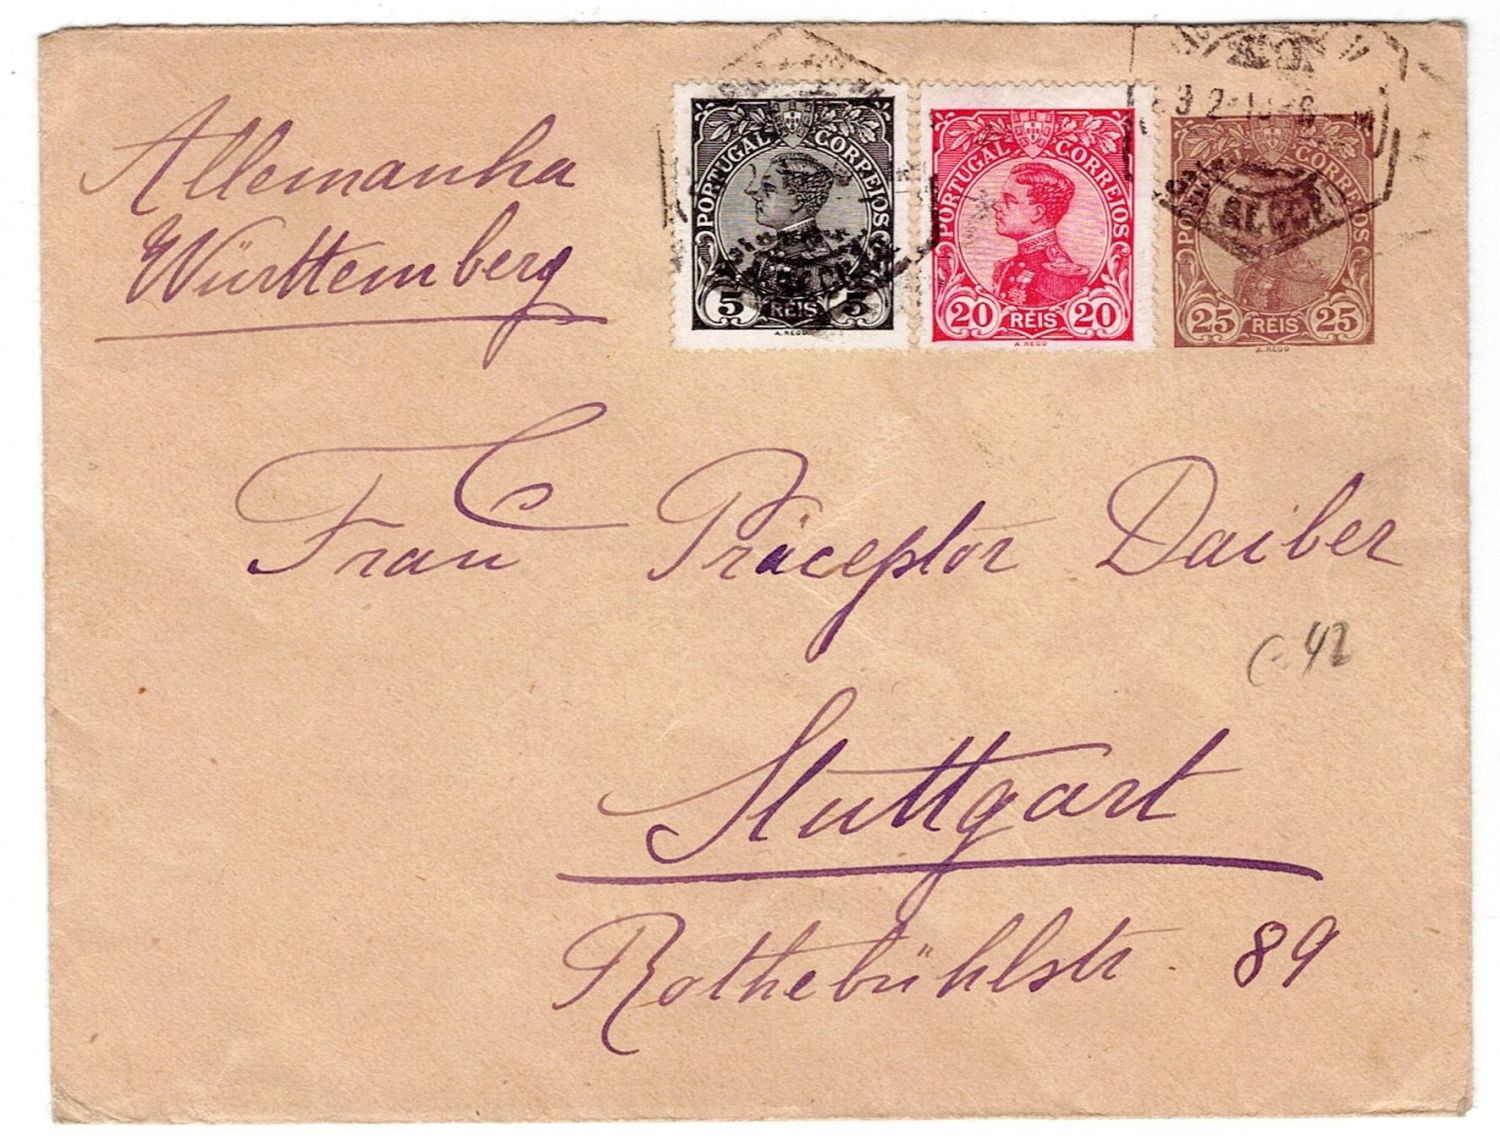 Allemanha
Württemberg
PORTUGAL CORREIOS
5 REIS 5
A. REGO
PORTUGAL CORREIOS
20 REIS 20
A. REGO
CORREIOS
25 REIS 25
A. REGO
Frau Präceptor Daiber
42
Stuttgart
Rothebühlstr 89